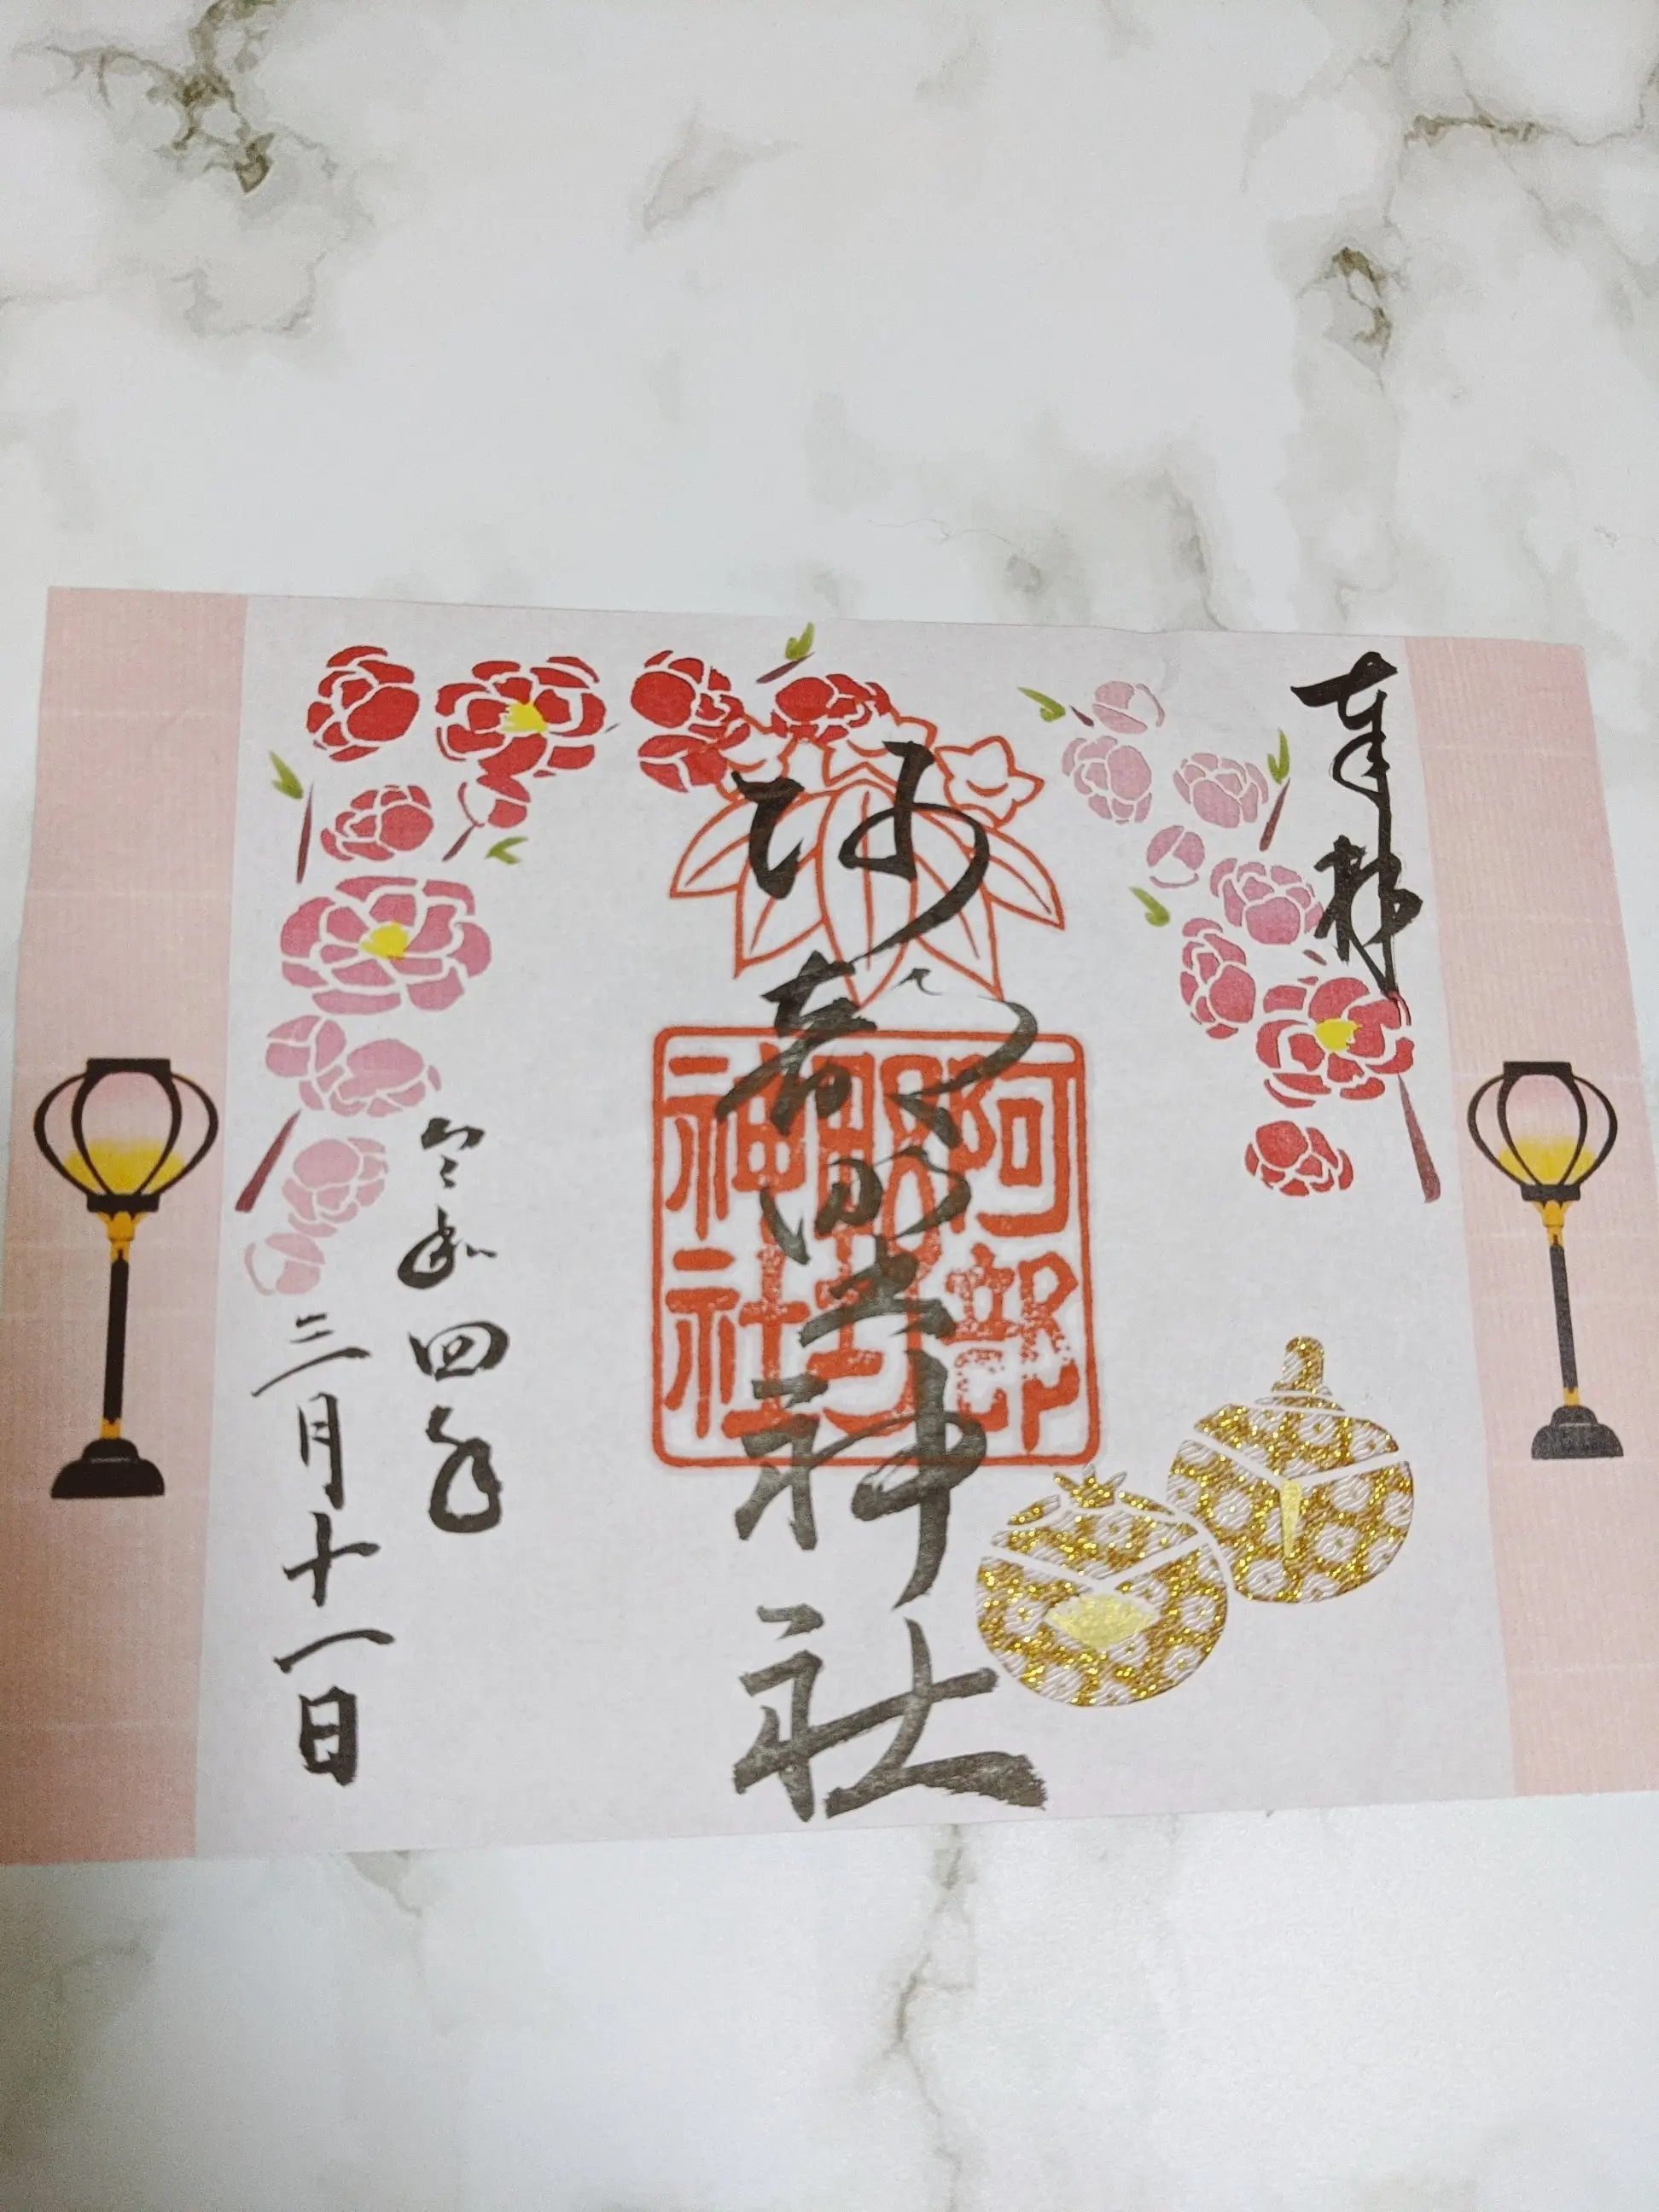 奉拝
阿部野神社
阿部
野
神社
令和四年
三月十一日